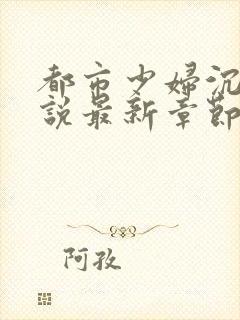 都市少婦沉
說最新章節
阿孜